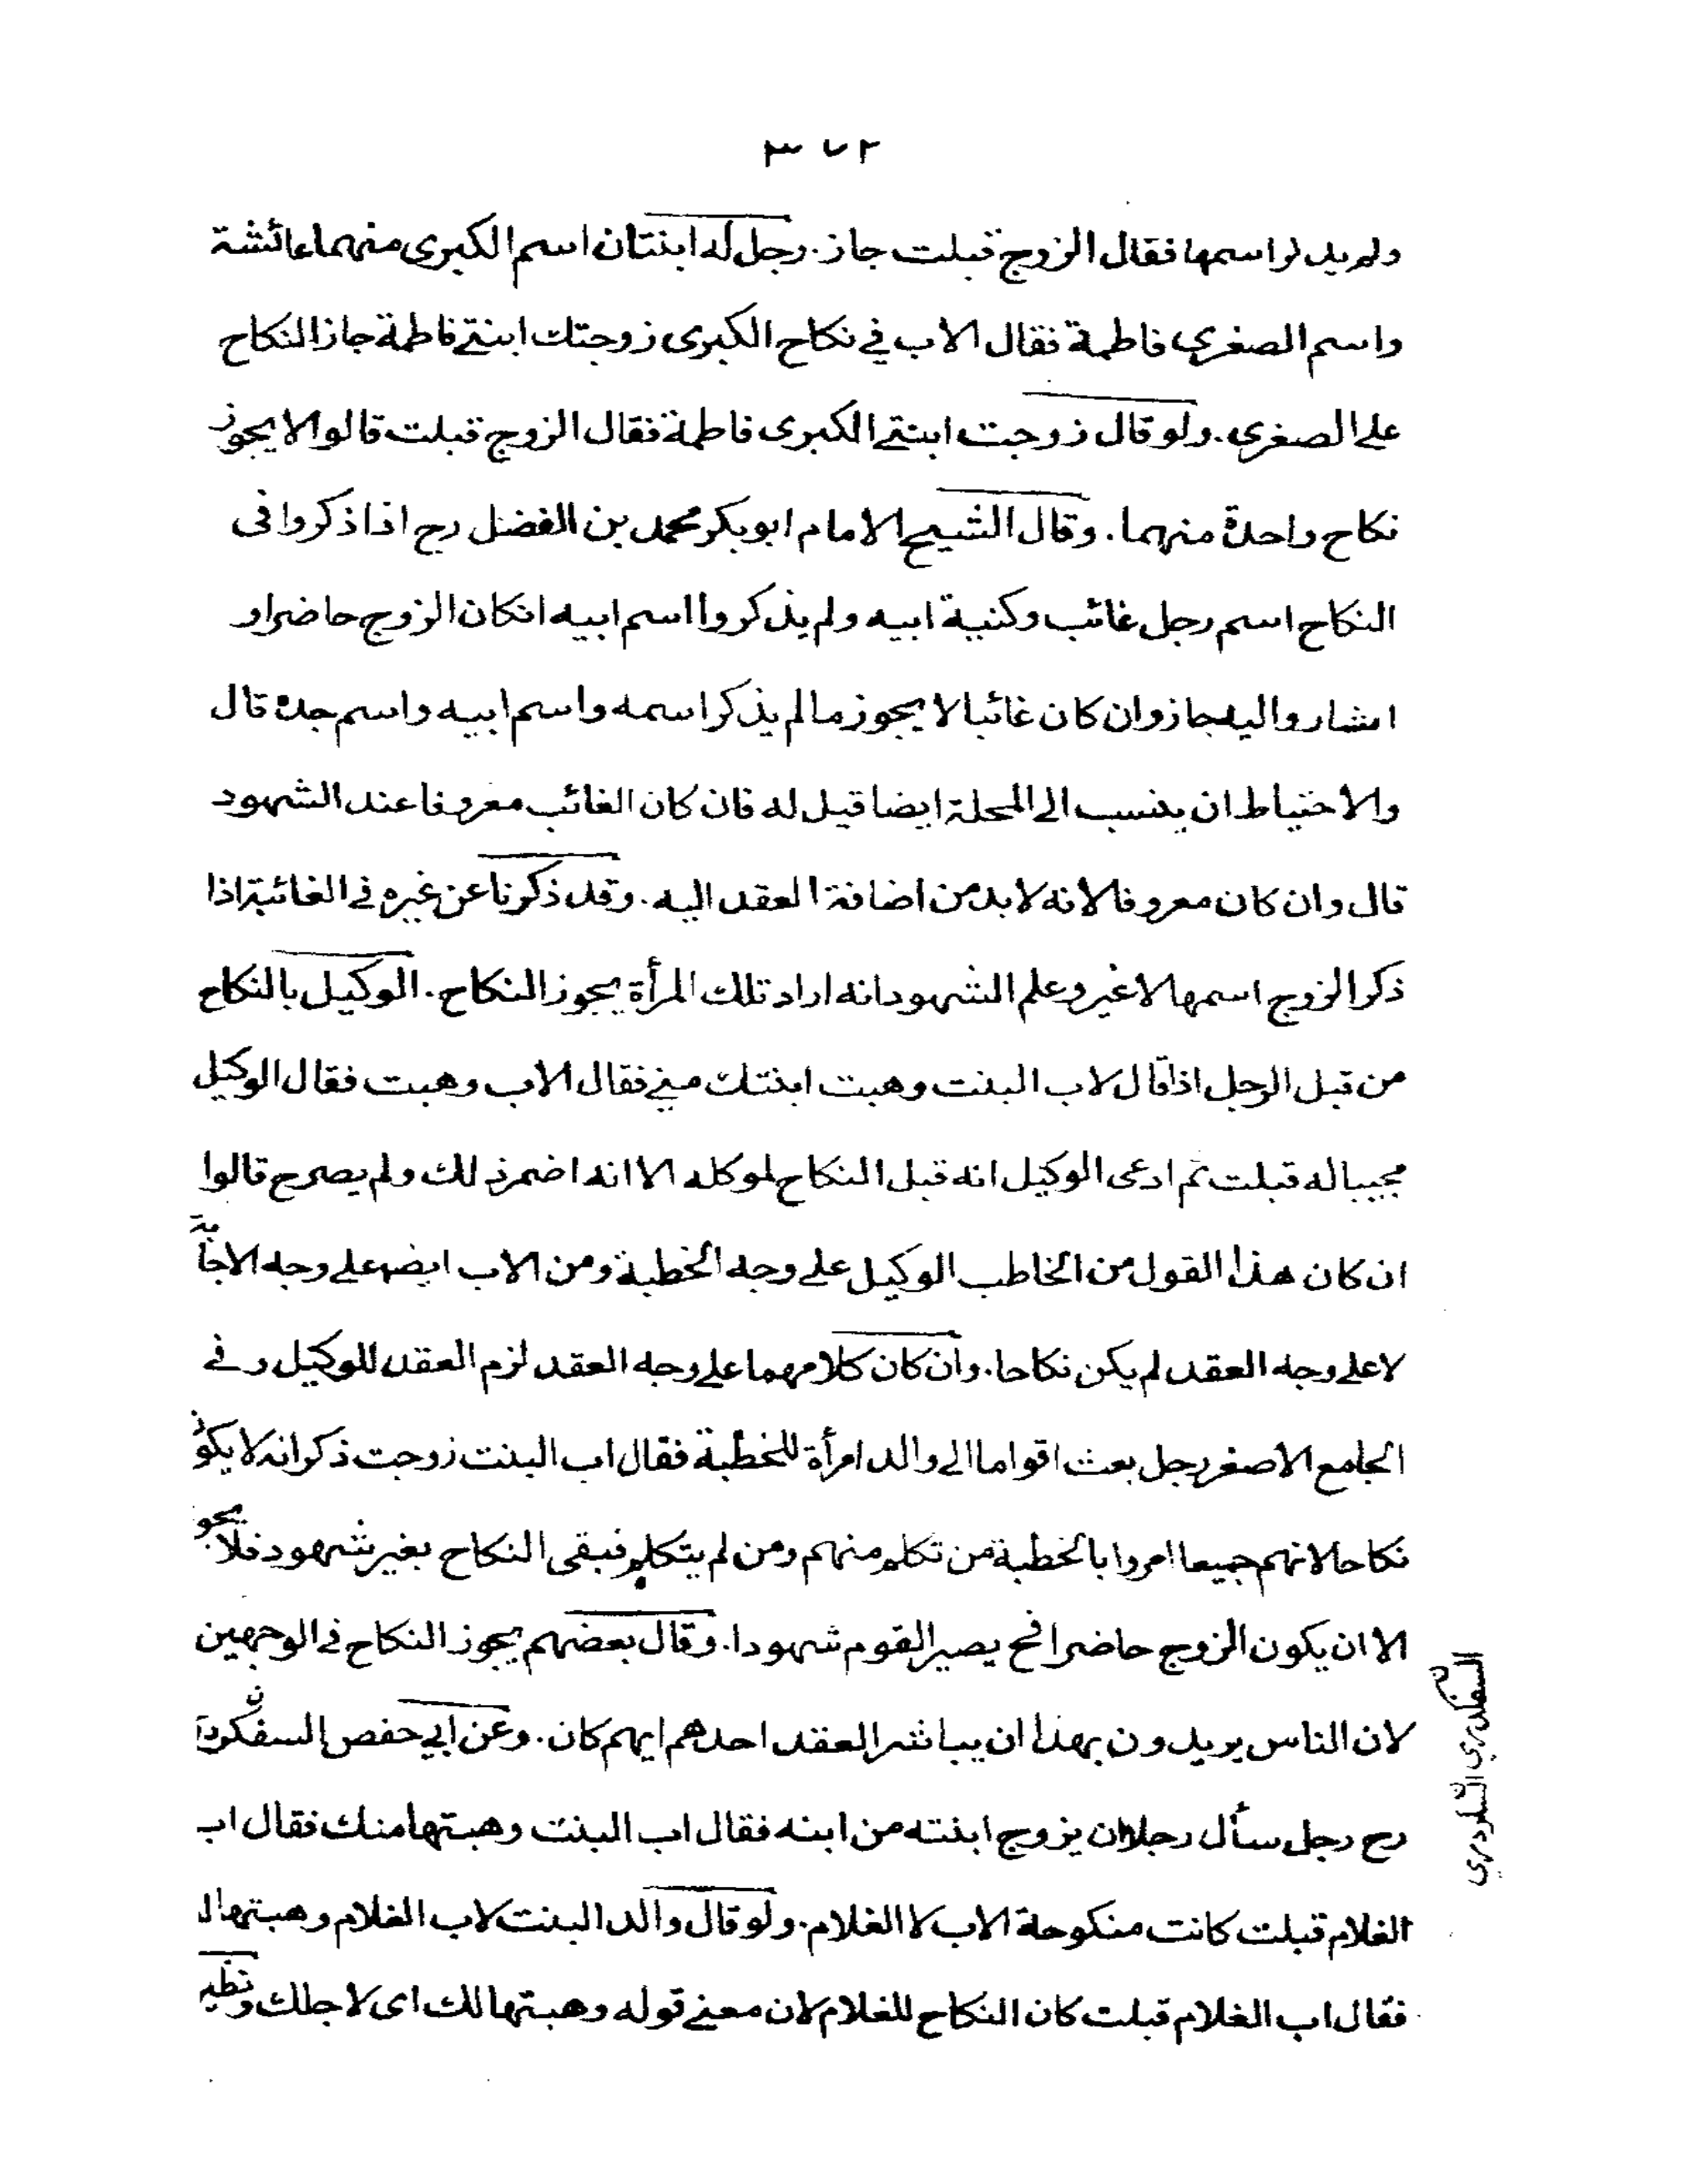 ٣٧٢
ولم يذكر اسمها فقال الزوج قبلت جاز. رجل له ابنتان اسم الكبرى منهما عائشة
واسم الصغرى فاطمة فقال الاب في نكاح الكبرى زوجتك ابنتي فاطمة جاز النكاح
على الصغرى. ولو قال زوجت ابنتي الكبرى فاطمة فقال الزوج قبلت قالوا لا يجوز
نكاح واحدة منهما. وقال الشيخ الامام ابو بكر محمد بن الفضل رح اذا ذكروا في
النكاح اسم رجل غائب وكنية ابيه ولم يذكروا اسم ابيه انكان الزوج حاضرا و
اشاروا اليه جاز وان كان غائبا لا يجوز ما لم يذكر اسمه واسم ابيه واسم جده قال
والاحتياط ان ينسب الى المحلة ايضا قيل له فان كان الغائب معروفا عند الشهود
قال وان كان معروفا لانه لا بد من اضافة العقد اليه. وقد ذكرنا عن غيره في الغائبة اذا
ذكر الزوج اسمها لا غير وعلم الشهود انه اراد تلك المرأة يجوز النكاح. الوكيل بالنكاح
من قبل الرجل اذا قال لاب البنت وهبت ابنتك مني فقال الاب وهبت فقال الوكيل
مجيبا له قبلت ثم ادعى الوكيل انه قبل النكاح لموكله الا انه اضمر ذلك ولم يصرح قالوا
ان كان هذا القول من الخاطب الوكيل على وجه الخطبة ومن الاب ايضا على وجه الاجابة
لا على وجه العقد لم يكن نكاحا. وان كان كلامهما على وجه العقد لزم العقد للوكيل وفي
الجامع الاصغر رجل بعث اقواما الى والد امرأة للخطبة فقال اب البنت زوجت ذكر انه لا يكون
نكاحا لانهم جميعا امروا بالخطبة من تكلم منهم ومن لم يتكلم فبقى النكاح بغير شهود فلا يجو
الا ان يكون الزوج حاضرا فح يصير القوم شهودا. وقال بعضهم يجوز النكاح في الوجهين
لان الناس يريدون بهذا ان يباشر العقد احدهم ايهم كان. وعن ابي حفص السفكردي
رح رجل سأل رجلا ان يزوج ابنته من ابنه فقال اب البنت وهبتها منك فقال اب
الغلام قبلت كانت منكوحة الاب لا الغلام. ولو قال والد البنت لاب الغلام وهبتها لك
فقال اب الغلام قبلت كان النكاح للغلام لان معنى قوله وهبتها لك اى لاجلك ونظير